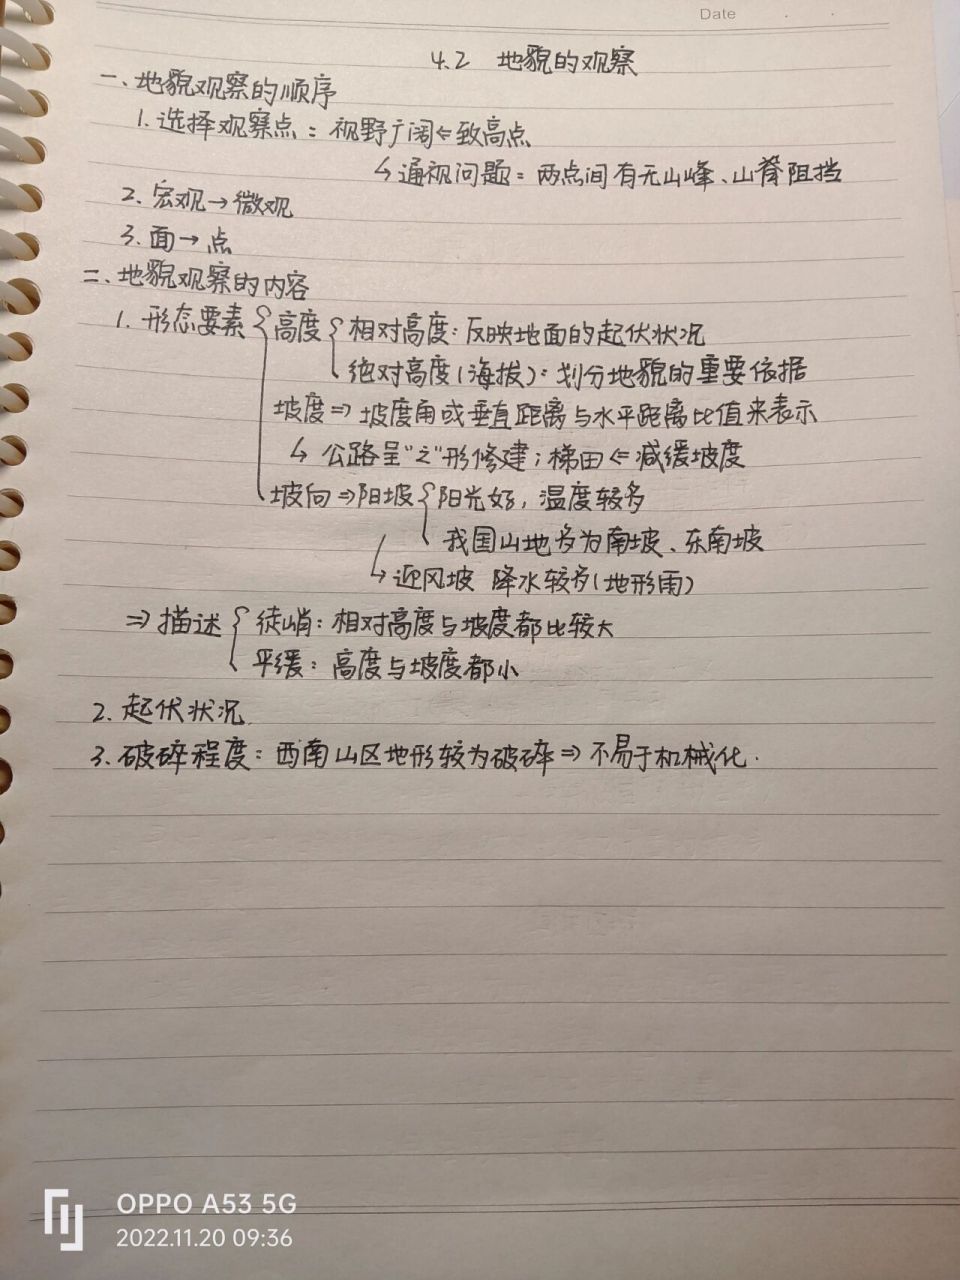 Date
4.2 地貌的观察
一、地貌观察的顺序
1. 选择观察点：视野广阔⇐致高点
↳通视问题：两点间有无山峰、山脊阻挡
2. 宏观→微观
3. 面→点
二、地貌观察的内容
1. 形态要素{高度{相对高度：反映地面的起伏状况
绝对高度(海拔)：划分地貌的重要依据
坡度⇒坡度角或垂直距离与水平距离比值来表示
↳公路呈“之”形修建；梯田⇐减缓坡度
坡向⇒阳坡{阳光好，温度较多
我国山地多为南坡、东南坡
↳迎风坡 降水较多(地形雨)
⇒描述{徒峭：相对高度与坡度都比较大
平缓：高度与坡度都小
2. 起伏状况
3. 破碎程度：西南山区地形较为破碎⇒不易于机械化.
OPPO A53 5G
2022.11.20 09:36